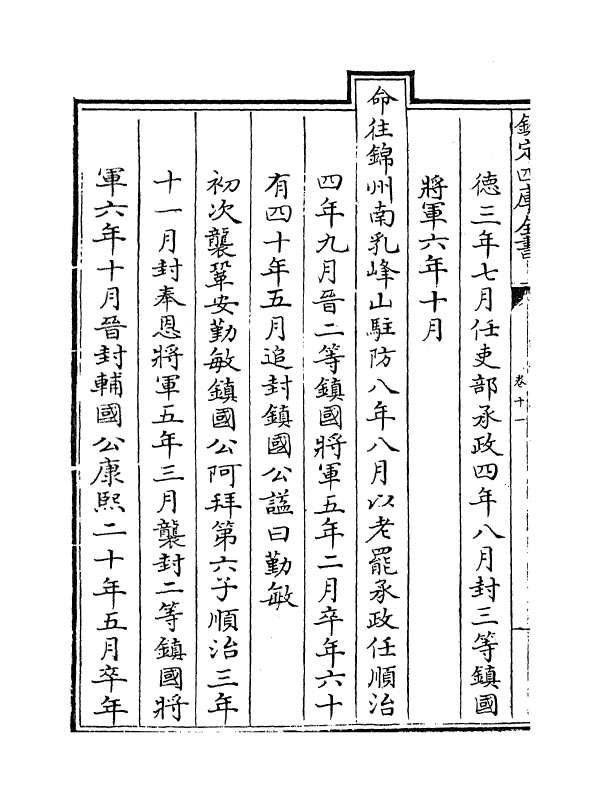 欽定四庫全書
卷十一
德三年七月任吏部承政四年八月封三等鎮國
將軍六年十月
命往錦州南乳峰山駐防八年八月以老罷承政任順治
四年九月晉二等鎮國將軍五年二月卒年六十
有四十年五月追封鎮國公諡曰勤敏
初次襲鞏安勤敏鎮國公阿拜第六子順治三年
十一月封奉恩將軍五年三月襲封二等鎮國將
軍六年十月晉封輔國公康熙二十年五月卒年